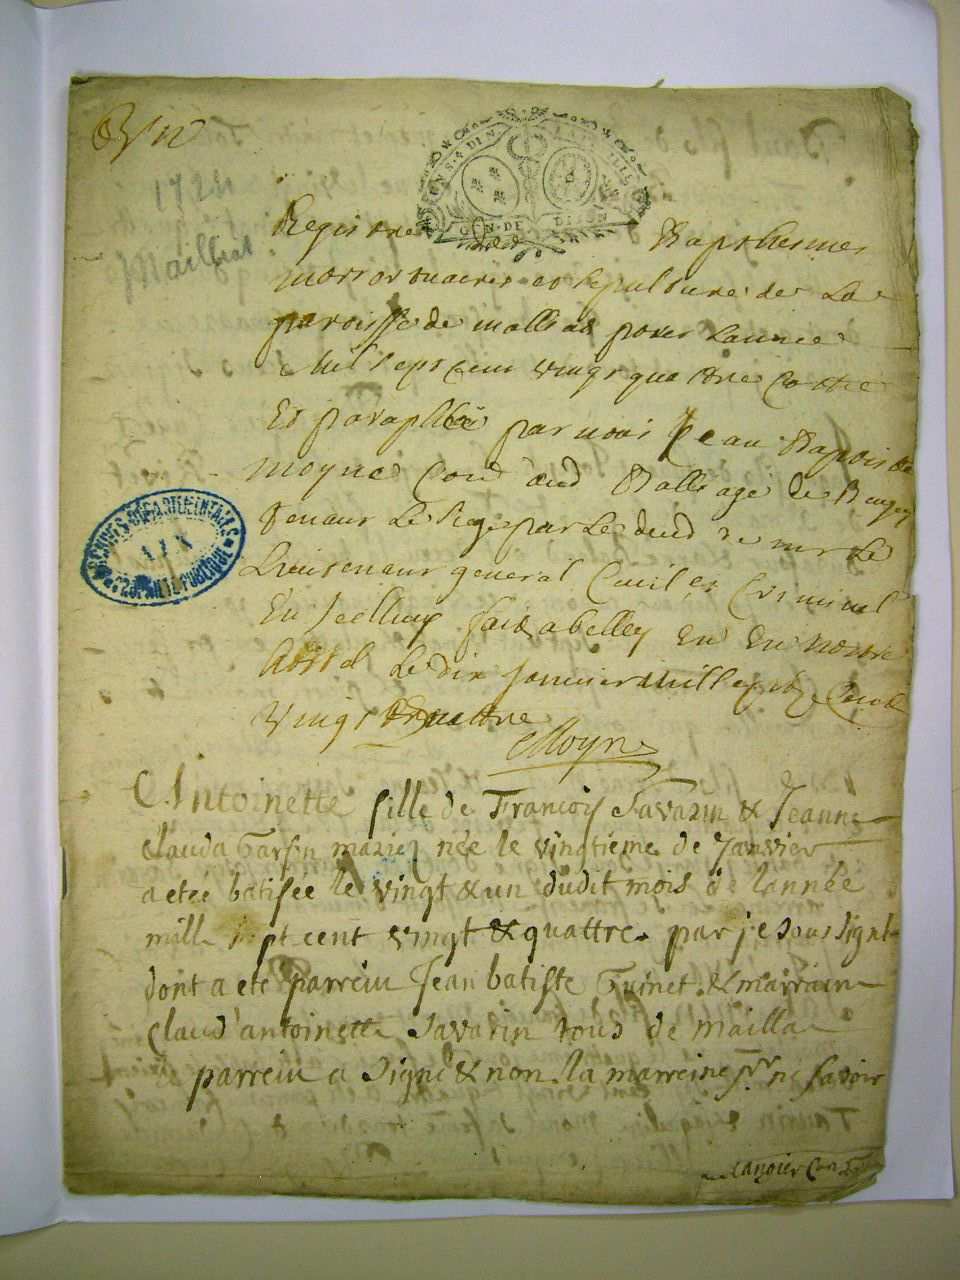 1724
Mailliat
GEN. DE DIJON
Registre des Bapthesmes
mortortuaires et sepulture de La
paroisse de malliat pour Lannee
Mil sept cent vingt quattre Cotté
Et paraphée par nous Jean Baptiste
moyne Balliage de Bugey
Le siege par Le de mr Le
Lieutenant general Civil et Criminel
fait a belley En En nostre
hostel Le dix Janvier mill sept Cent
vingt quattre
Moyne
Antoinette fille de François Savarin & Jeanne
clauda mariez née le vingtieme de Janvier
a etée batisée le vingt & un dudit mois de lannée
mille sept cent vingt & quattre. par je sous signé
dont a eté parrein Jean batiste Guinet & marraine
claud'antoinette Savarin tous de mailla
parrein a signé & non la marreine pr ne savoir
ARCHIVES DÉPARTEMENTALES
AIN
PROPRIÉTÉ PUBLIQUE